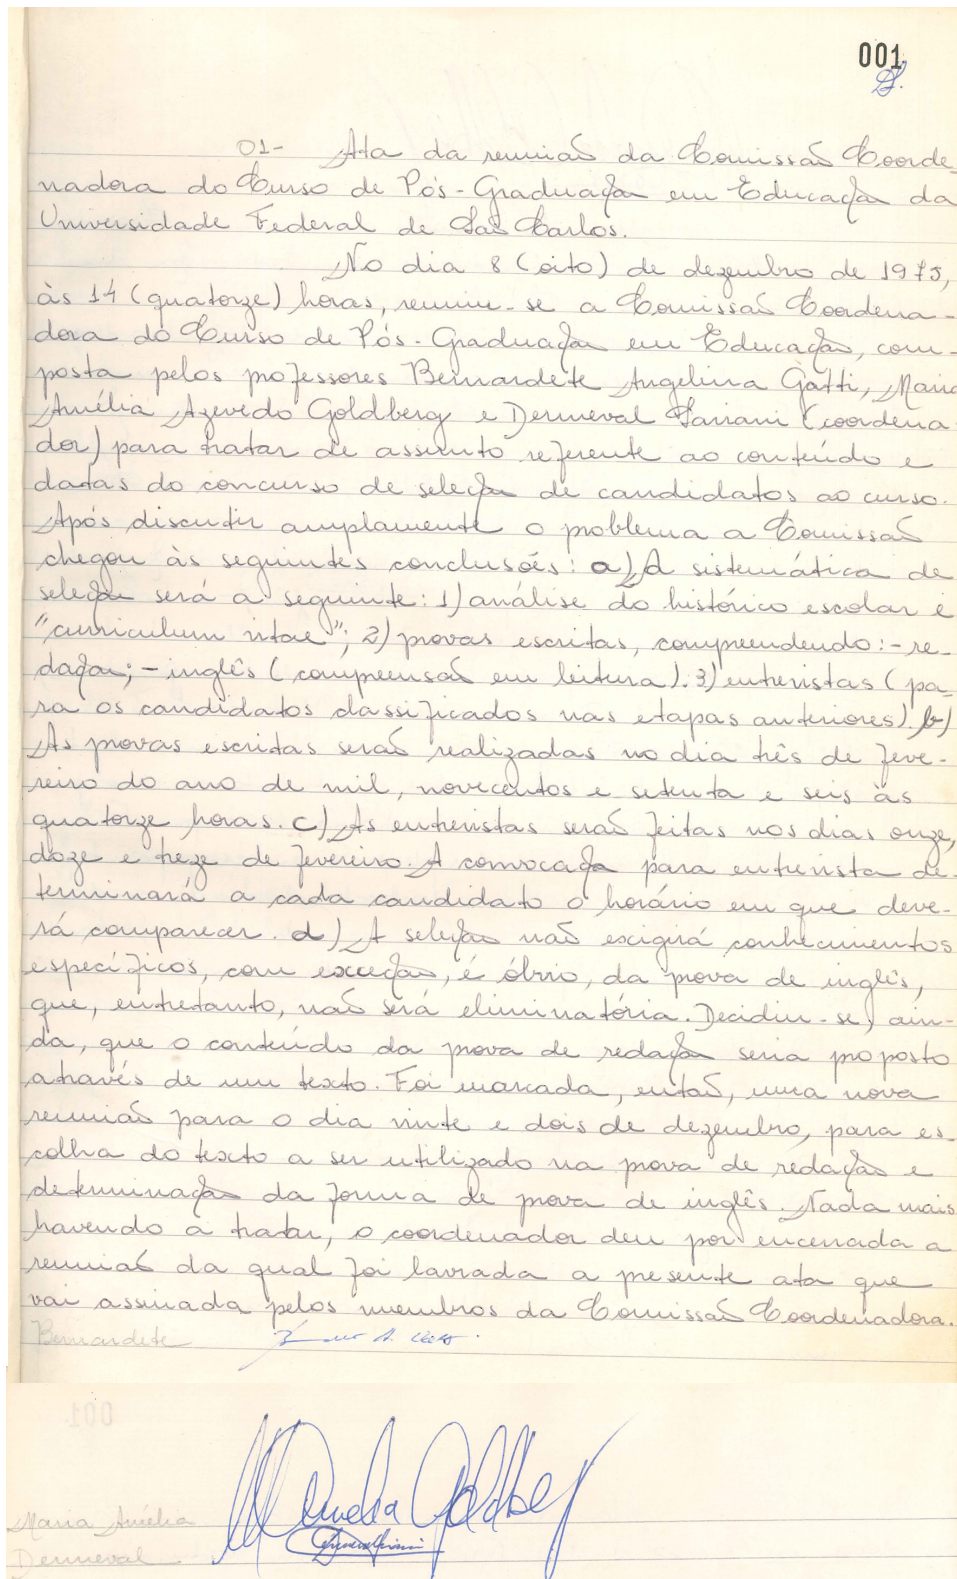 001
01- Ata da reunião da Comissão Coorde-
nadora do Curso de Pós-Graduação em Educação da
Universidade Federal de São Carlos.
No dia 8 (oito) de dezembro de 1975,
às 14 (quatorze) horas, reuniu-se a Comissão Coordena-
dora do Curso de Pós-Graduação em Educação, com-
posta pelos professores Bernardete Angelina Gatti, Maria
Amélia Azevedo Goldberg e Dermeval Saviani (coordena
dor) para tratar de assunto referente ao conteúdo e
datas do concurso de seleção de candidatos ao curso.
Após discutir amplamente o problema a Comissão
chegou às seguintes conclusões: a) A sistemática de
seleção será a seguinte: 1) análise do histórico escolar e
"curriculum vitae"; 2) provas escritas, compreendendo: - re-
dação; - inglês (compreensão em leitura). 3) entrevistas (pa-
ra os candidatos classificados nas etapas anteriores). b)
As provas escritas serão realizadas no dia três de feve-
reiro do ano de mil, novecentos e setenta e seis às
quatorze horas. c) As entrevistas serão feitas nos dias onze,
doze e treze de fevereiro. A convocação para entrevista de-
terminará a cada candidato o horário em que deve-
rá comparecer. d) A seleção não exigirá conhecimentos
específicos, com exceção, é óbvio, da prova de inglês,
que, entretanto, não será eliminatória. Decidiu-se, ain-
da, que o conteúdo da prova de redação seria proposto
através de um texto. Foi marcada, então, uma nova
reunião para o dia vinte e dois de dezembro, para es-
colha do texto a ser utilizado na prova de redação e
determinação da forma de prova de inglês. Nada mais
havendo a tratar, o coordenador deu por encerrada a
reunião da qual foi lavrada a presente ata que
vai assinada pelos membros da Comissão Coordenadora.
Bernardete
Maria Amélia
MAmelia Goldberg
Dermeval